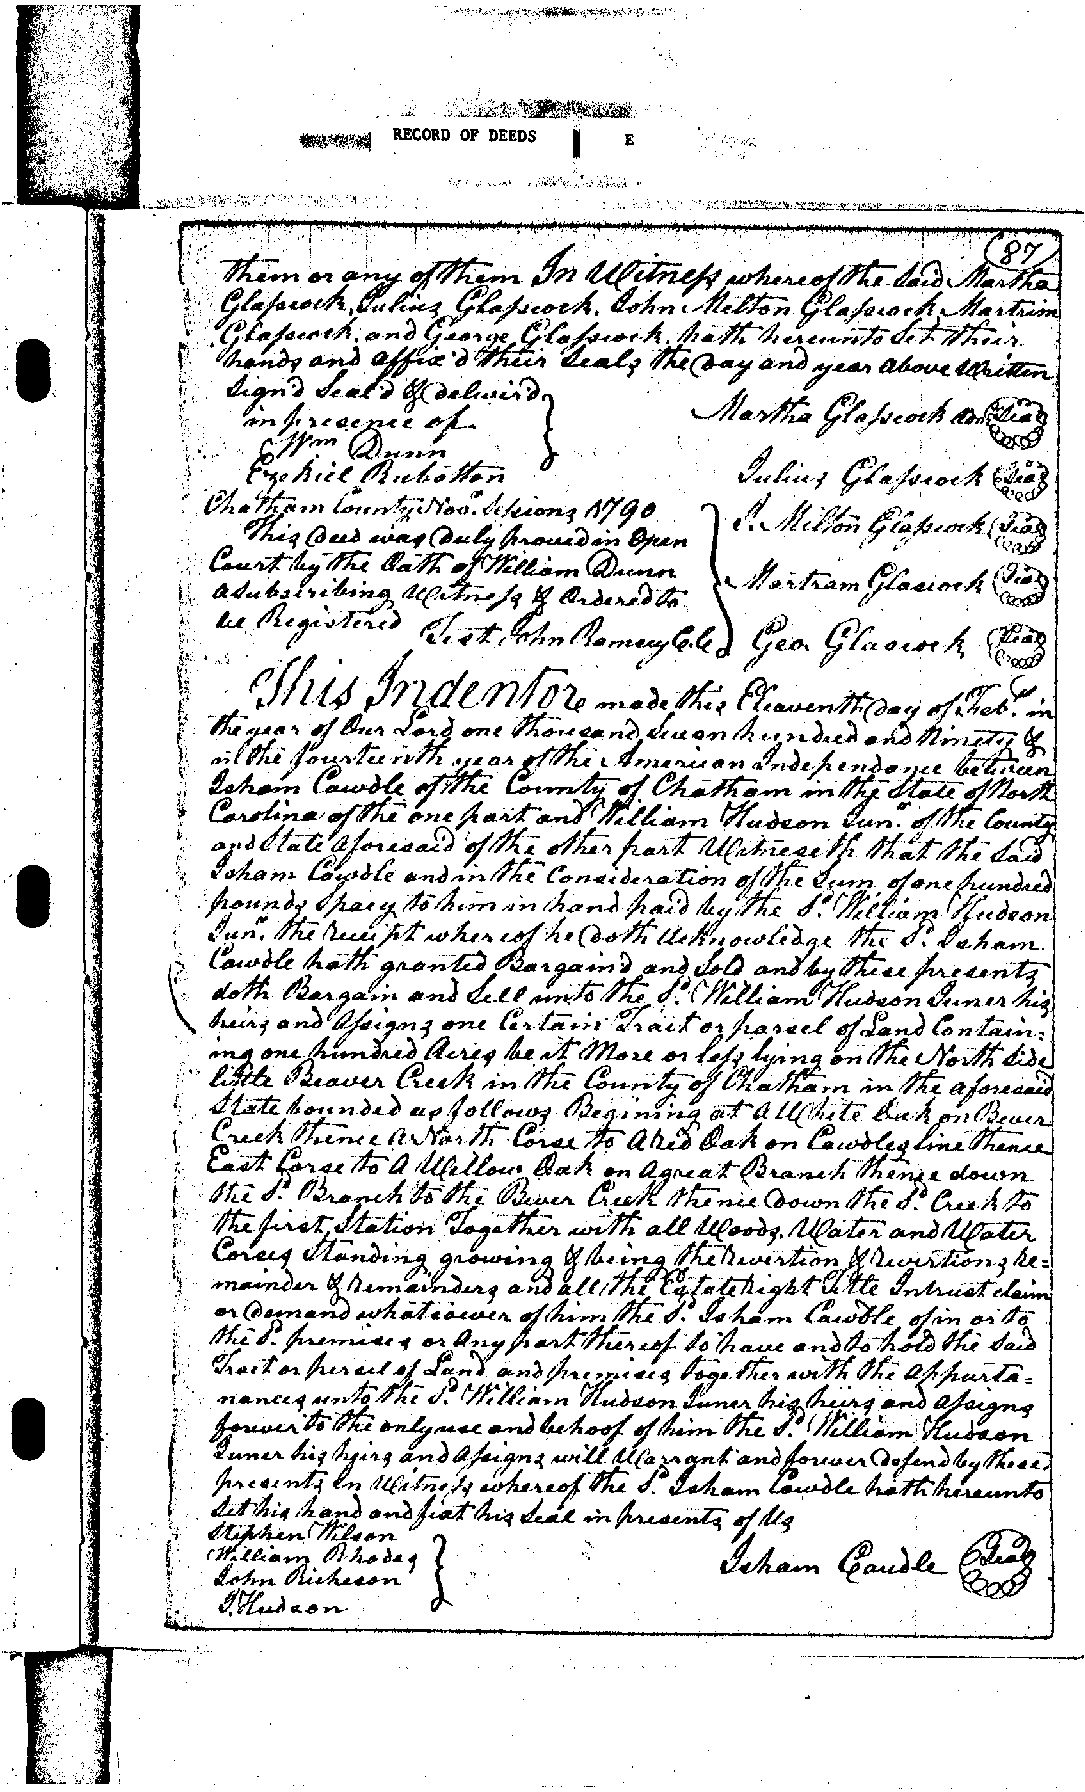 RECORD OF DEEDS E
87
them or any of them In Witness whereof the Said Martha
Glasscock, Julius Glasscock, John Melton Glasscock Martrim
Glasscock, and George Glasscock, hath hereunto Set their
hands and affix'd their Seals the Day and year above Written
Sign'd Seal'd & delivir'd
in presence of
Wm Dunn
Ezekiel Rubotton
Martha Glasscock Seal
Julius Glasscock Seal
J. Milton Glasscock Seal
Martram Glascock Seal
Geo. Glascock Seal
Chatham County Nov. Sessions 1790
This Deed was Duly proved in Open
Court by the Oath of William Dunn
a subscribing Witness & Ordered to
be Registered
Test. John Ramsey C.C.
This Indentore made this Eleaventh Day of Feb.r in
the year of Our Lord one thousand Seven hundred and Ninety &
in the fourteenth year of the American Independance between
Isham Cawdle of the County of Chatham in the State of North
Carolina of the one part and William Hudson Jun.r of the County
and State aforesaid of the other part Witneseth that the Said
Isham Cawdle and in the Consideration of the Sum of one hundred
pounds Specy to him in hand paid by the S.d William Hudson
Jun.r the receipt whereof he doth acknowledge the S.d Isham
Cawdle hath granted Bargain'd and Sold and by these presents
doth Bargain and Sell unto the S.d William Hudson Juner his
heirs and Assigns one Certain Tract or parsel of Land Contain=
ing one hundred Acres be it More or less lying on the North Side
little Beaver Creek in the County of Chatham in the aforesaid
State bounded as follows Begining at A White Oak on Bever
Creek thence A North Corse to A Red Oak on Cawdles line thence
East Corse to A Willow Oak on a great Branch thence down
the S.d Branch to the Bever Creek thence Down the S.d Creek to
the first Station Together with all Woods, Water and Water
Corses Standing growing & being the revertion & revertions re=
mainder & remainders and all the Estate Right Title Intrust claim
or Demand whatsoever of him the S.d Isham Cawdle of in or to
the S.d premises or any part thereof to have and to hold the Said
Tract or persel of Land and premises together with the appurta=
nances unto the S.d William Hudson Juner his heirs and Assigns
forever to the only use and behoof of him the S.d William Hudson
Juner his heirs and Assigns will Warrant and forever Defend by these
presents In Witness whereof the S.d Isham Cawdle hath hereunto
Set his hand and fixt his Seal in presents of Us
Stephen Wilson
William Rhodes
John Richeson
J. Hudson
Isham Caudle Seal